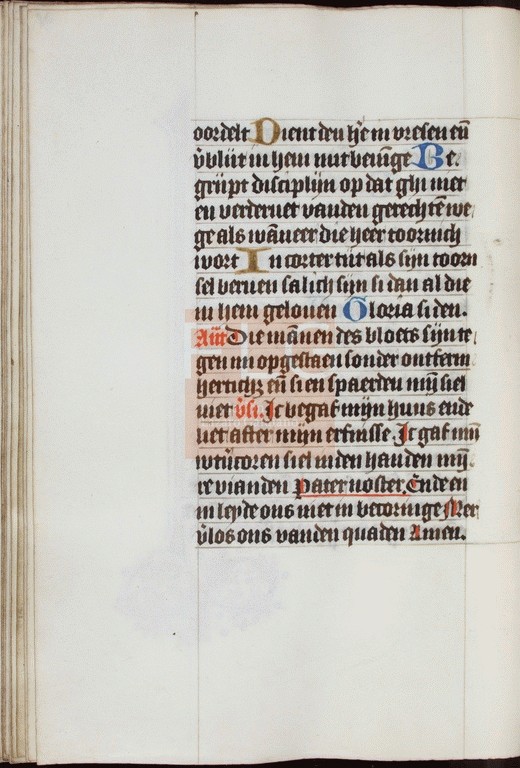 oordelt Dient den hē in vresen eñ
v̄blijt in hem mit bevīge Be,
grijpt disciplijn op dat ghi niet
en verderuet vanden gerechtē we
ge als wāneer die heer toornich
wort In corter tijt als sijn toorn
sel bernen salich sijn si dan al die
in hem gelouen Gloria si den.
Die mānen des bloets sijn te
gen mi opgestaen sonder ontferm
herticheit eñ si en spaerden mijn siel
niet v̄si. Ic begaf mijn huus ende
liet after mijn erfnisse. Ic gaf mijn
wtuercoren siel in den handen mij
re vianden Pater noster. Ende en
in leyde ons niet in becoringe Mer
v̄los ons vanden quaden Amen.